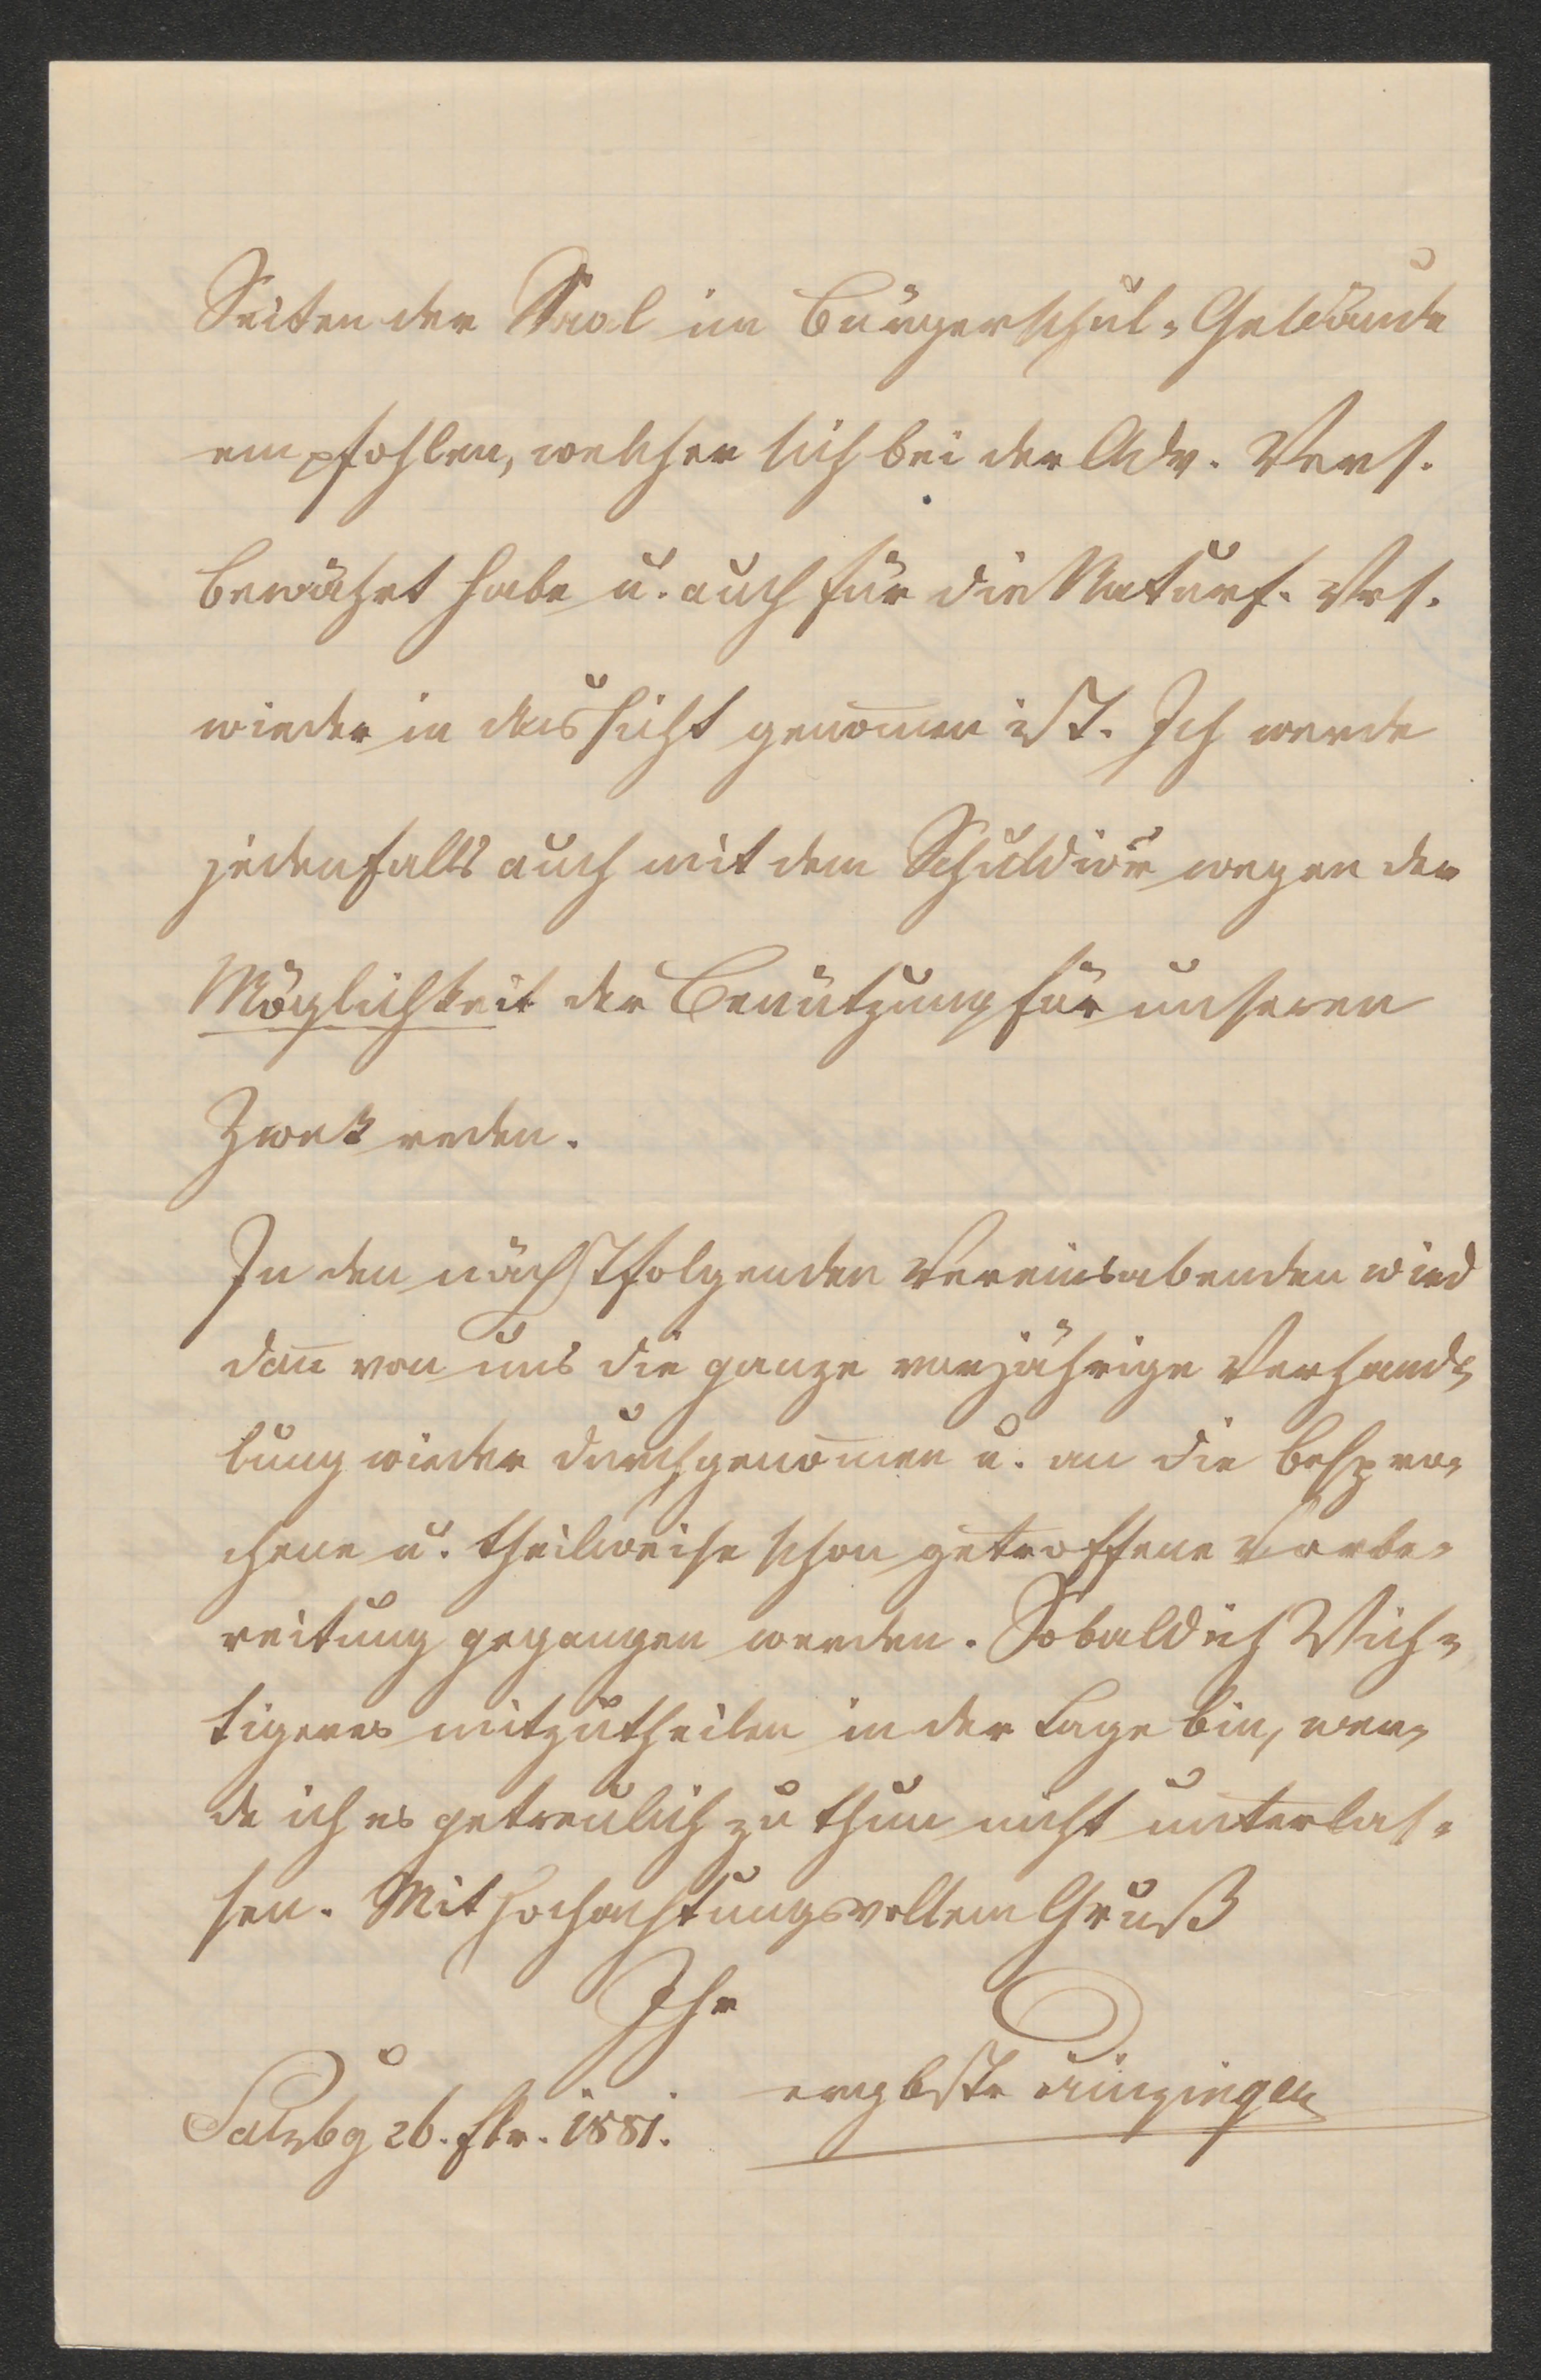 Seiten der Saal im Bürgerschul-Gebäude
empfohlen, welcher sich bei der Adv. Vers.
bewährt habe u. auch für die Naturf. Vrs.
wieder in Aussicht genom̅en ist. Ich werde
jedenfalls auch mit dem Schuldior wegen der
Möglichkeit der Benützung für unseren
Zwek reden.
In den nächstfolgenden Vereinsabenden wird
dan̅ von uns die ganze vorjährige Verhand-
lung wieder durchgenom̅en u. an die bespro-
chene u. theilweise schon getroffene Vorbe-
reitung gegangen werden. Sobald ich Wich-
tigeres mitzutheilen in der Lage bin, wer-
de ich es getreulich zu thun nicht unterlas-
sen. Mit hochachtungsvollem Gruß
Ihr
ergbste
Salzbg 26. Fbr. 1881.